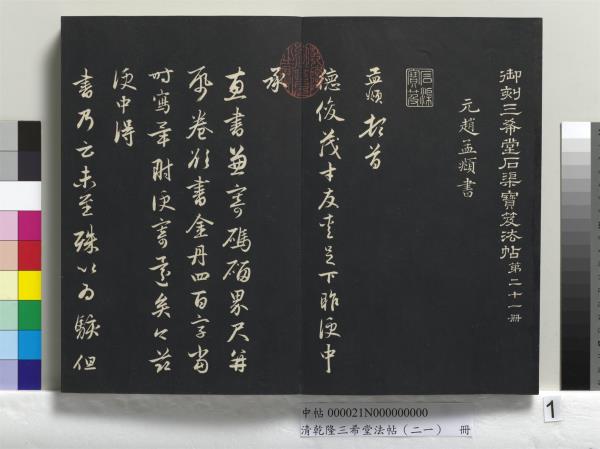 御刻三希堂石渠寶笈法帖第二十一冊
元趙孟頫書
石渠寶笈
孟頫頓首
德俊茂才友愛足下昨便中
承
直書兼寄碼碯界尺并
帋卷欲書金丹四百字當
時寫辛附便寄還矣今茲
便中得
書乃云未至殊以為駭但
中帖 000021N000000000
清乾隆三希堂法帖（二一） 冊
1